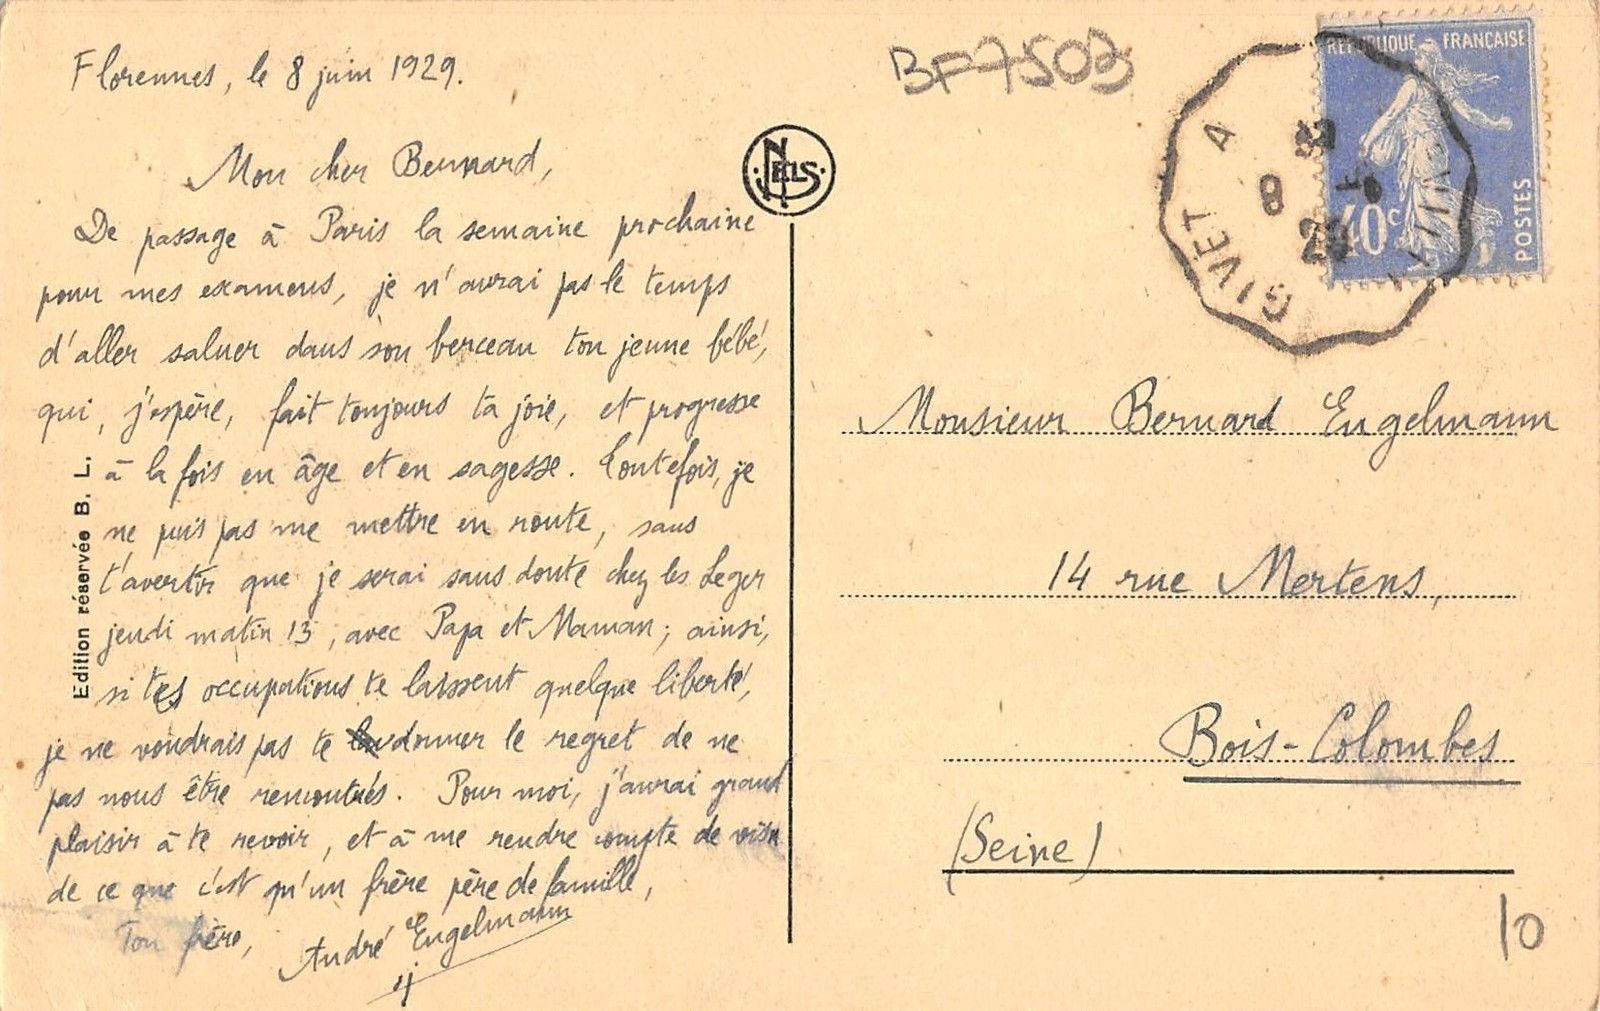 Florennes, le 8 juin 1929.
Mon cher Bernard,
De passage à Paris la semaine prochaine
pour mes examens, je n'aurai pas le temps
d'aller saluer dans son berceau ton jeune bébé,
qui, j'espère, fait toujours ta joie, et progresse
à la fois en âge et en sagesse. Toutefois, je
ne puis pas me mettre en route, sans
t'avertir que je serai sans doute chez les Leger
jeudi matin 13, avec Papa et Maman; ainsi,
si tes occupations te laissent quelque liberté,
je ne voudrais pas te donner le regret de ne
pas nous être rencontrés. Pour moi, j'aurai grand
plaisir à te revoir, et à me rendre compte de visu
de ce que c'est qu'un frère père de famille,
Ton frère,
André Engelmann
Edition réservée B. L.
NELS
BF7503
RÉPUBLIQUE FRANÇAISE
40c
POSTES
GIVET A
8
29
Monsieur Bernard Engelmann
14 rue Mertens,
Bois-Colombes
(Seine)
10